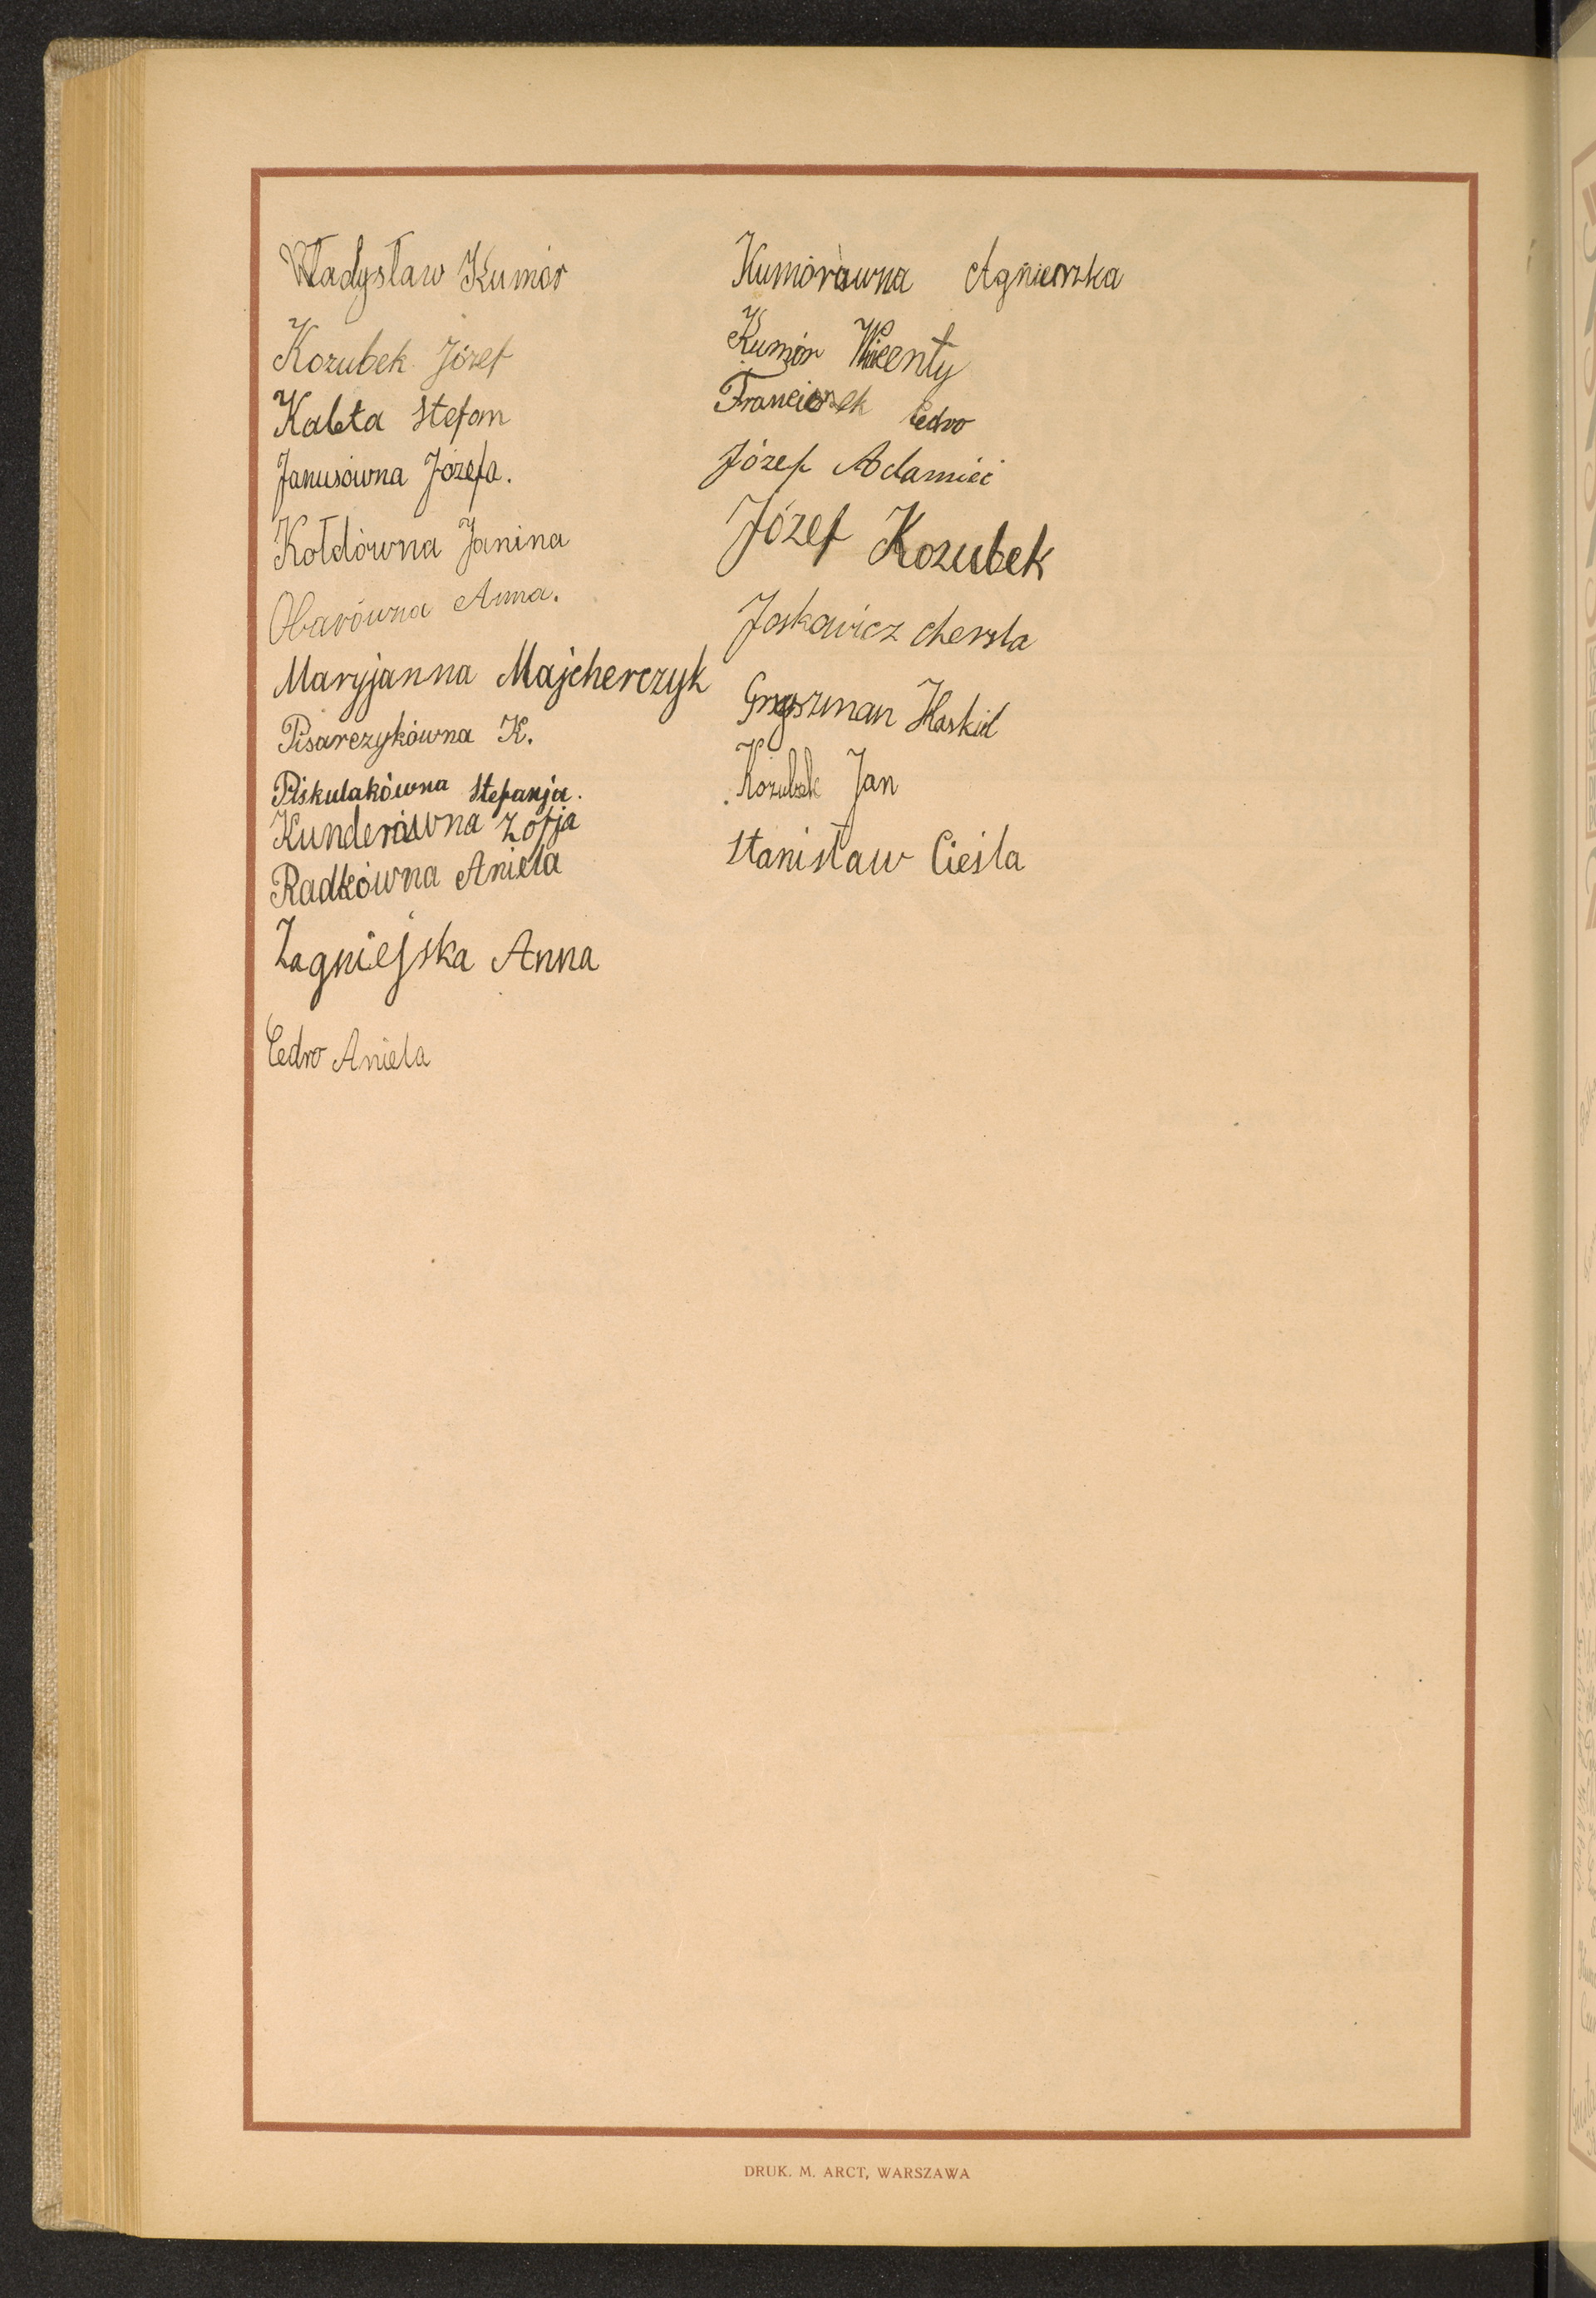 Władysław Kumór
Kozubek Józef
Kaleta Stefan
Janusówna Józefa.
Kołdówna Janina
Obarówna Anna.
Maryjanna Majcherczyk
Pisarczykówna K.
Piskulakówna Stefanja.
Kunderówna Zofja
Radkówna Aniela
Zagniejska Anna
Cedro Aniela
Kumorówna Agnieszka
Kumór Wicenty
Franciszek Cedro
Józef Adamiec
Józef Kozubek
Joskowicz
Haskiel
Kozubek Jan
Stanisław Cieśla
DRUK. M. ARCT, WARSZAWA